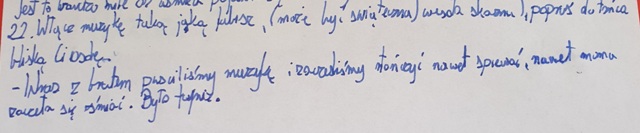 jest to bardzo miłe
22. Włącz muzykę taką jaką lubisz, (może być świąteczna) wesoła skoczna), poproś do tańca
bliską Ci osobę.
- Wraz z bratem puściliśmy muzykę i zaczęliśmy tańczyć nawet śpiewać, nawet mama
zaczęła się śmiać. Było fajnie.